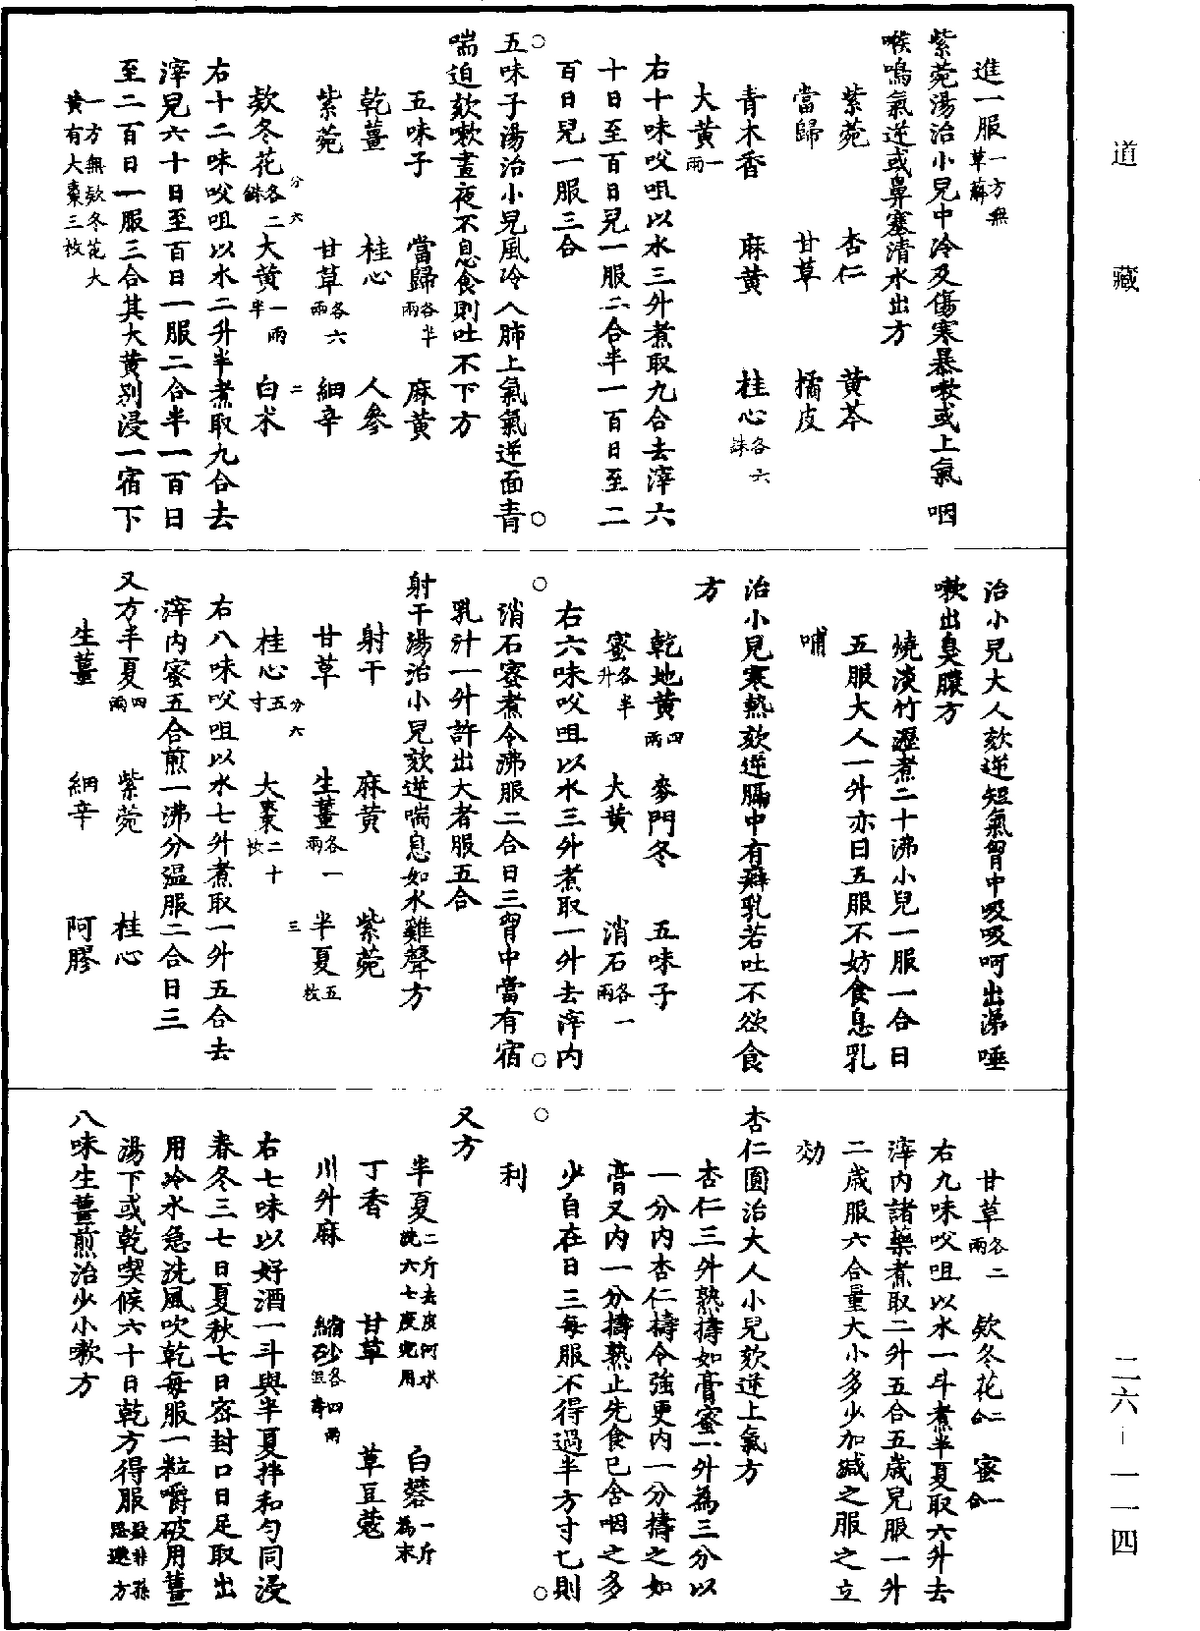 道藏
進一服一方無草蘚
紫菀湯治小兒中冷及傷寒暴嗽或上氣咽
喉鳴氣逆或鼻塞清水出方
紫菀 杏仁 黄芩
當歸 甘草 橘皮
青木香 麻黄 桂心各六銖
大黄一兩
右十味㕮咀以水三升煮取九合去滓六
十日至百日兒一服二合半一百日至二
百日兒一服三合
五味子湯治小兒風冷入肺上氣氣逆面青
喘迫欬嗽晝夜不息食則吐不下方
五味子 當歸各半兩 麻黄
乾薑 桂心 人參
紫菀 甘草各六兩 細辛
分六 二
欵冬花各二銖 大黄一兩半 白术
右十二味㕮咀以水二升半煮取九合去
滓兒六十日至百日一服二合半一百日
至二百日一服三合其大黄别浸一宿下
一方無欵冬花大黄有大棗三枚
治小兒大人欬逆短氣胷中吸吸呵出涕唾
嗽出臭膿方
燒淡竹瀝煮二十沸小兒一服一合日
五服大人一升亦日五服不妨食息乳
哺
治小兒寒熱欬逆膈中有癖乳若吐不欲食
方
乾地黄四兩 麥門冬 五味子
蜜各半升 大黄 消石各一兩
右六味㕮咀以水三升煮取一升去滓内
消石蜜煮令沸服二合日三胷中當有宿
乳汁一升許出大者服五合
射干湯治小兒欬逆喘息如水雞聲方
射干 麻黄 紫菀
甘草 生薑各一兩 半夏五枚
分六 三
桂心五寸 大棗二十枚
右八味㕮咀以水七升煮取一升五合去
滓内蜜五合煎一沸分温服二合日三
又方半夏四兩 紫菀 桂心
生薑 細辛 阿膠
甘草各二兩 欵冬花二合 蜜一合
右九味㕮咀以水一斗煮半夏取六升去
滓内諸藥煮取二升五合五歲兒服一升
二歲服六合量大小多少加減之服之立
効
杏仁圓治大人小兒欬逆上氣方
杏仁三升熟擣如膏蜜一升為三分以
一分内杏仁擣令強更内一分擣之如
膏又内一分擣熟止先食已含咽之多
少自在日三每服不得過半方寸匕則
利
又方
半夏二斤去皮河水洗六七度完用 白礬一斤為末
丁香 甘草 草豆蔻
川升麻 縮砂各四兩
右七味以好酒一斗與半夏拌和勻同浸
春冬三七日夏秋七日密封口日足取出
用冷水急洗風吹乾每服一粒嚼破用薑
湯下或乾喫候六十日乾方得服疑非孫思邈方
八味生薑煎治少小嗽方
二六—一一四